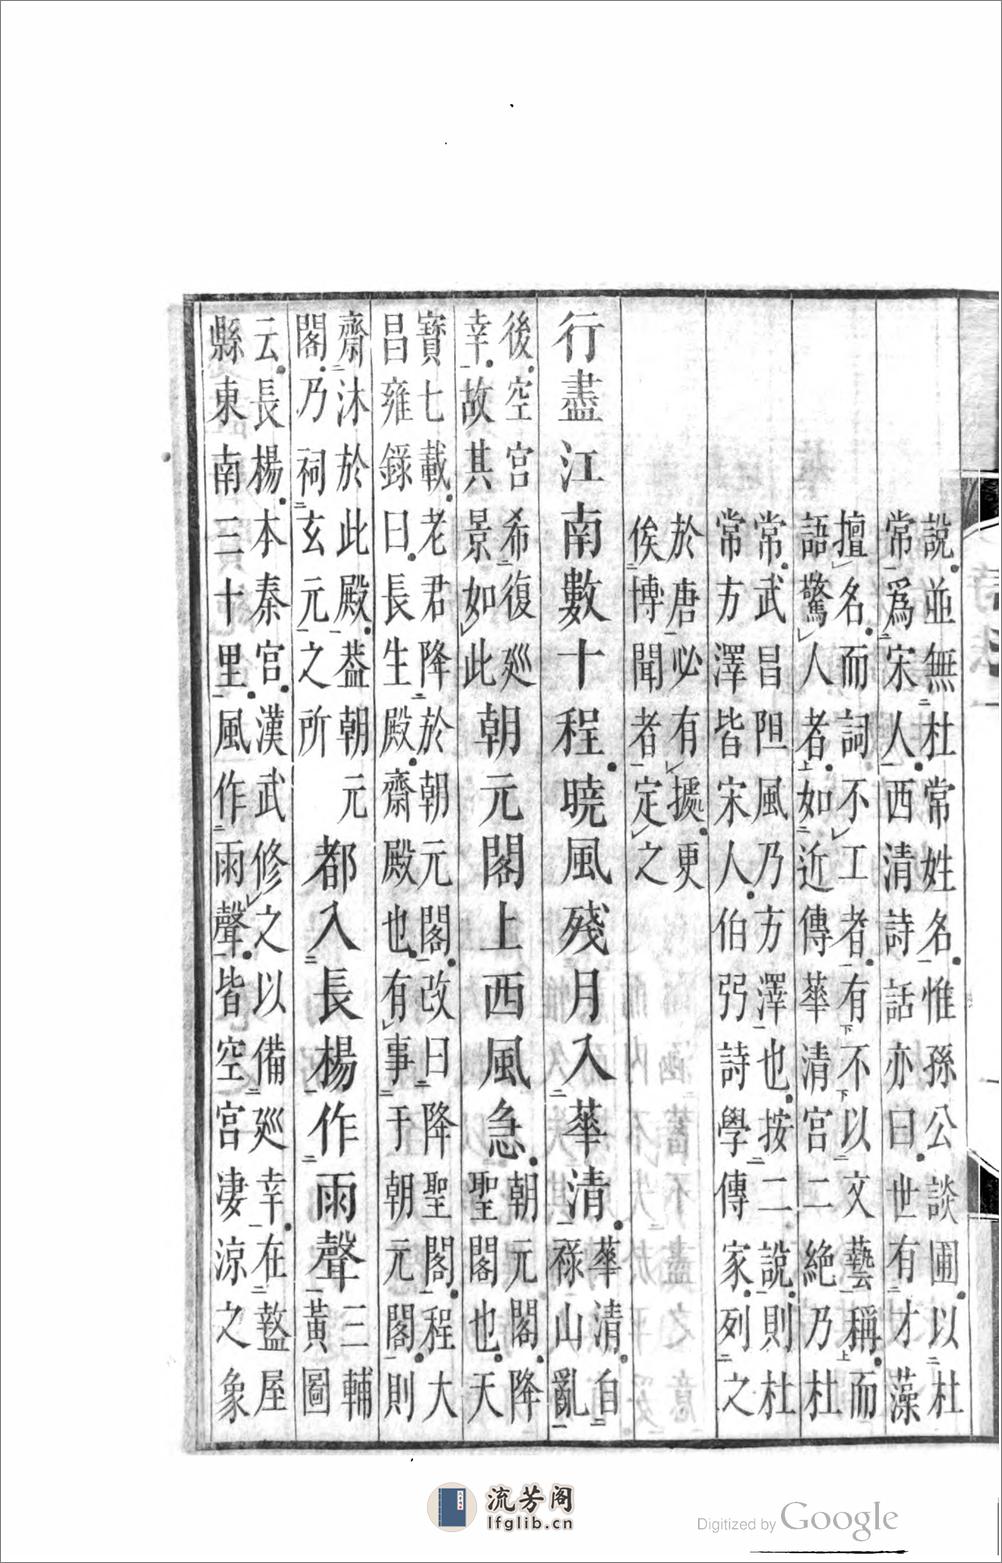 說。並無杜常姓名。惟孫公談圃。以杜
常爲宋人。西清詩話亦曰。世有才藻
擅名。而詞不工者。有不以文藝稱。而
語驚人者。如近傳華清宮二絶乃杜
常。武昌阻風乃方澤也。按二說。則杜
常方澤皆宋人。伯弜詩學傳家。列之
於唐。必有據。更
俟博聞者定之
行盡江南數十程。曉風殘月入華清。
華清。自
祿山亂
後。空宮希復廵
幸。故其景如此
朝元閣上西風急。
朝元閣。降
聖閣也。天
寶七載。老君降於朝元閣。改曰降聖閣。程大
昌雍錄曰。長生殿。齋殿也。有事于朝元閣。則
齋沐於此殿。葢朝元
閣。乃祠玄元之所
都入長楊作雨聲
三輔
黃圖
云。長楊。本秦宮。漢武修之以備廵幸。在盩屋
縣東南三十里。風作雨聲。皆空宮凄涼之象
流芳阁
lfglib.cn
Digitized by Google